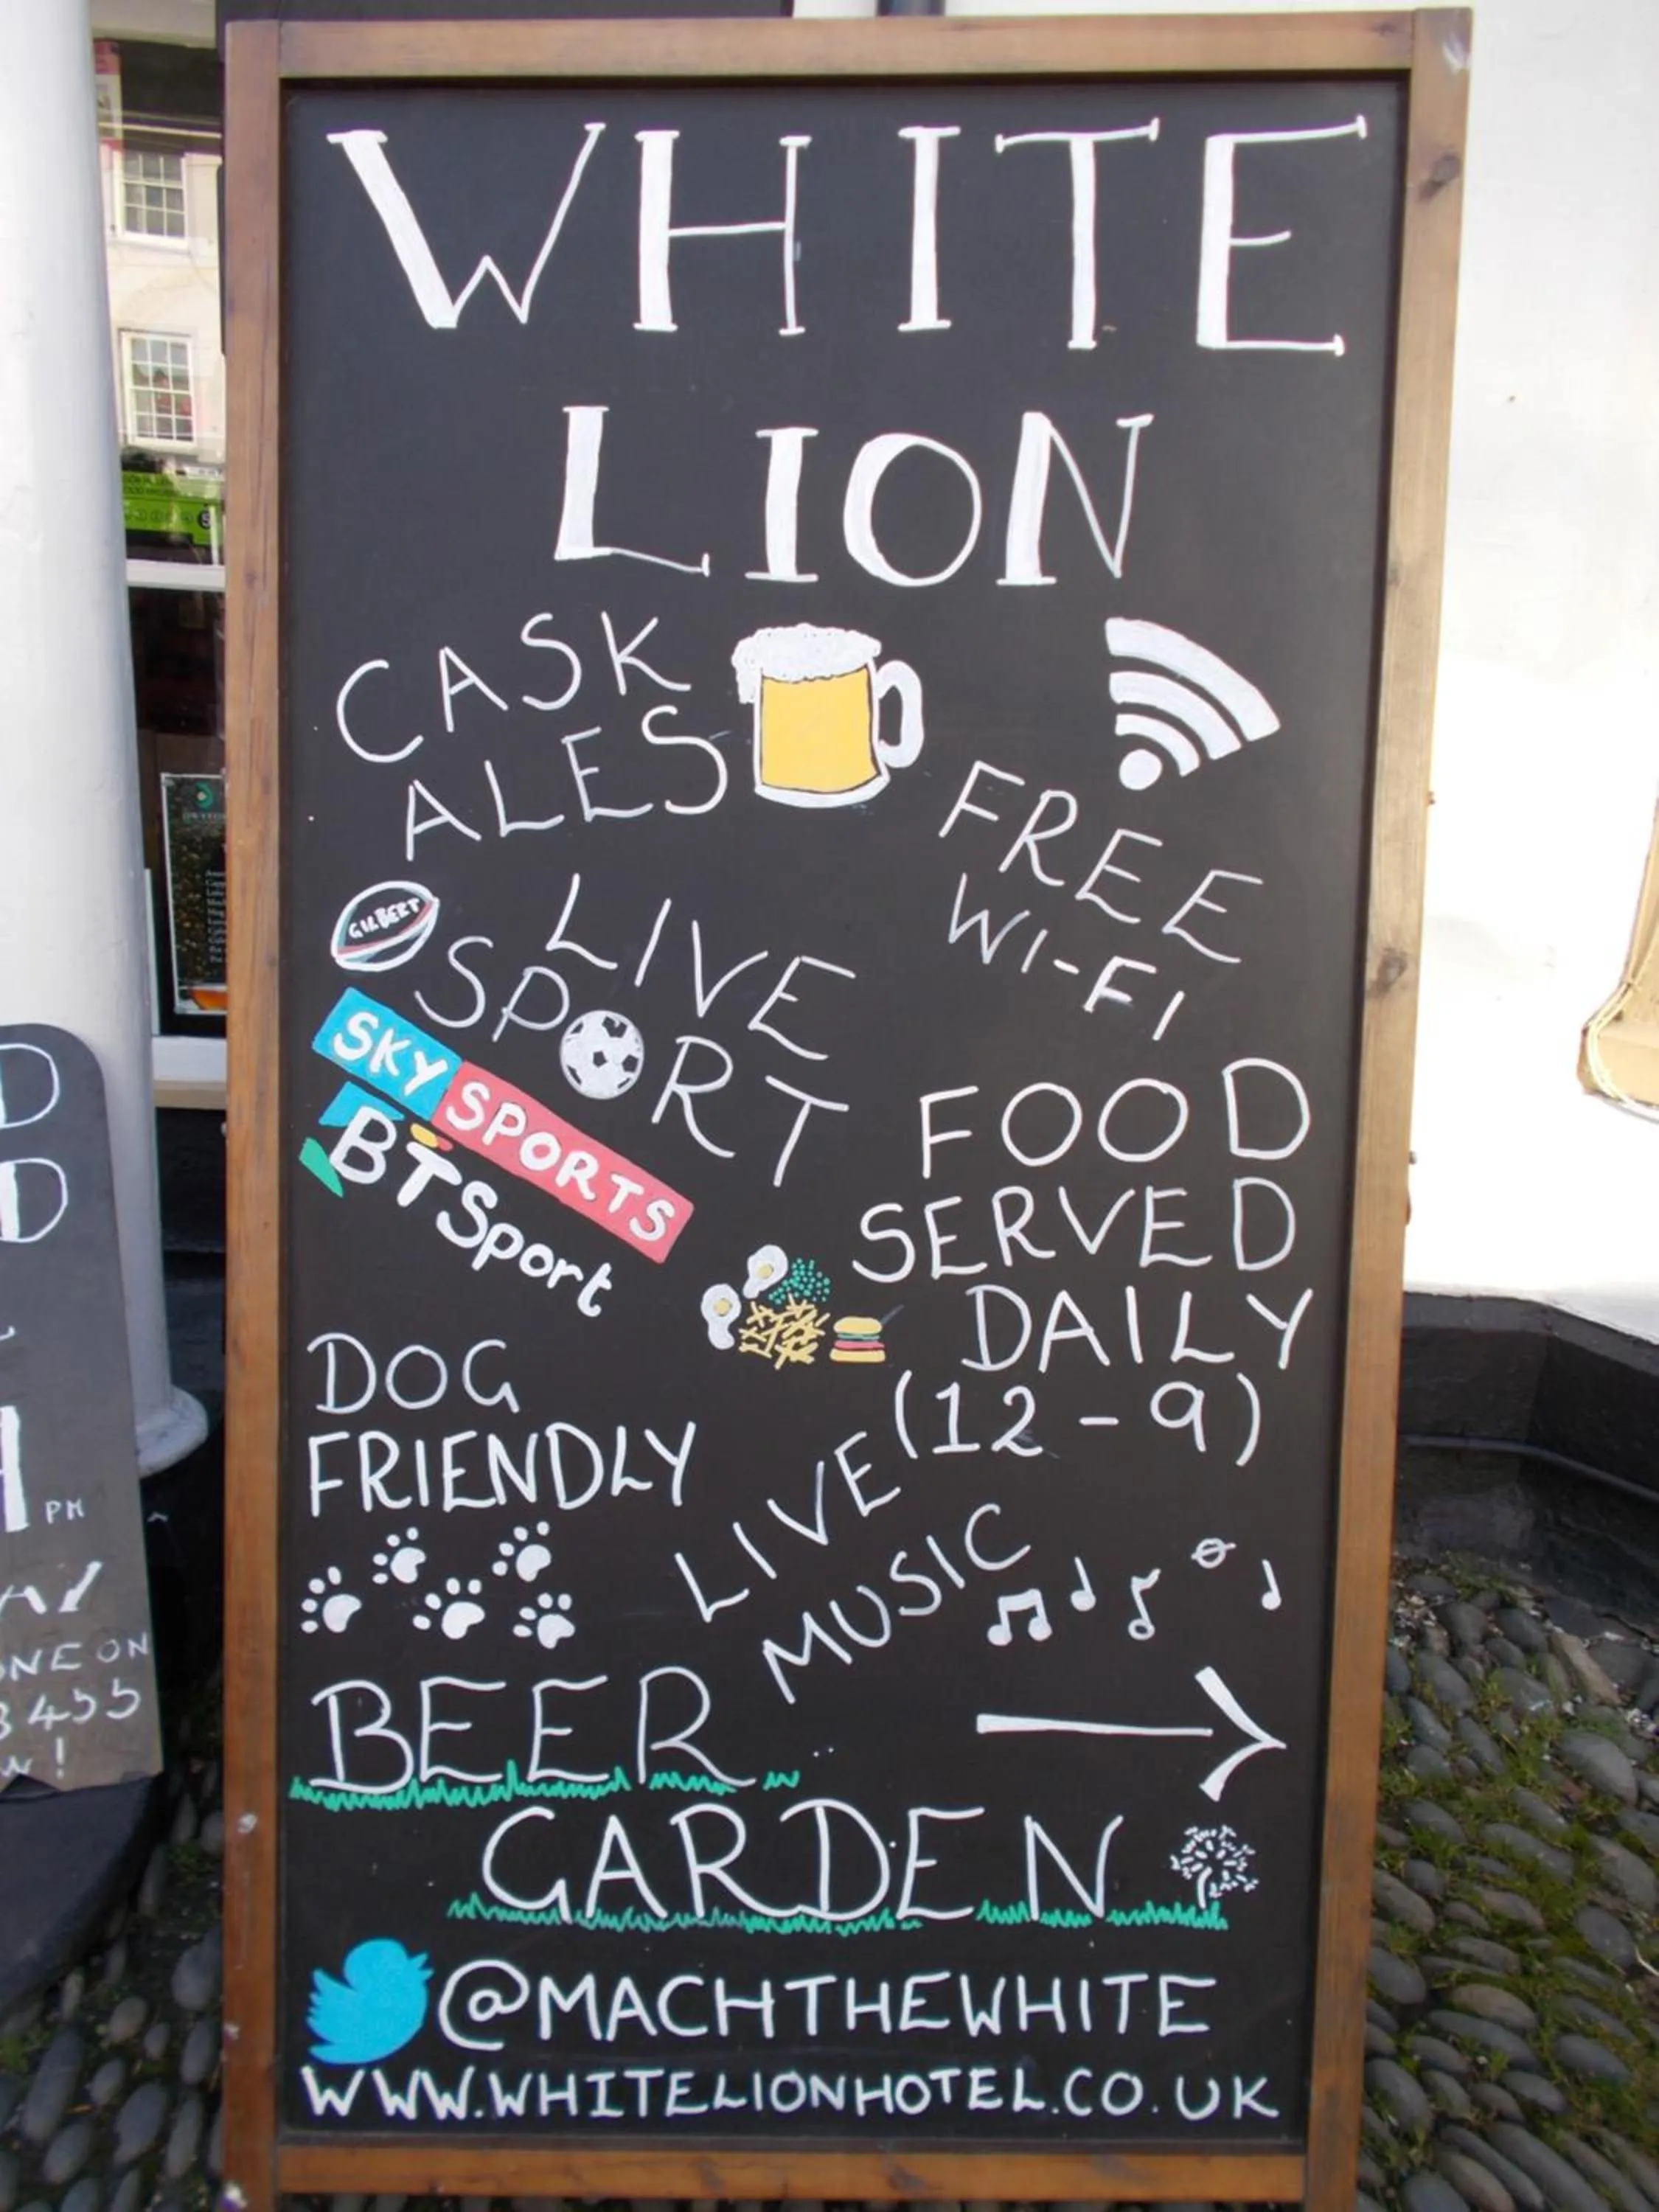 WHITE
LION
CASK
ALES
FREE
WI-FI
GILBERT
LIVE
SPORT
SKY SPORTS
BT Sport
FOOD
SERVED
DAILY
(12-9)
DOG
FRIENDLY
LIVE
MUSIC
BEER
GARDEN
@MACHTHEWHITE
WWW.WHITELIONHOTEL.CO.UK
D
D
PM
NE ON
3455
!